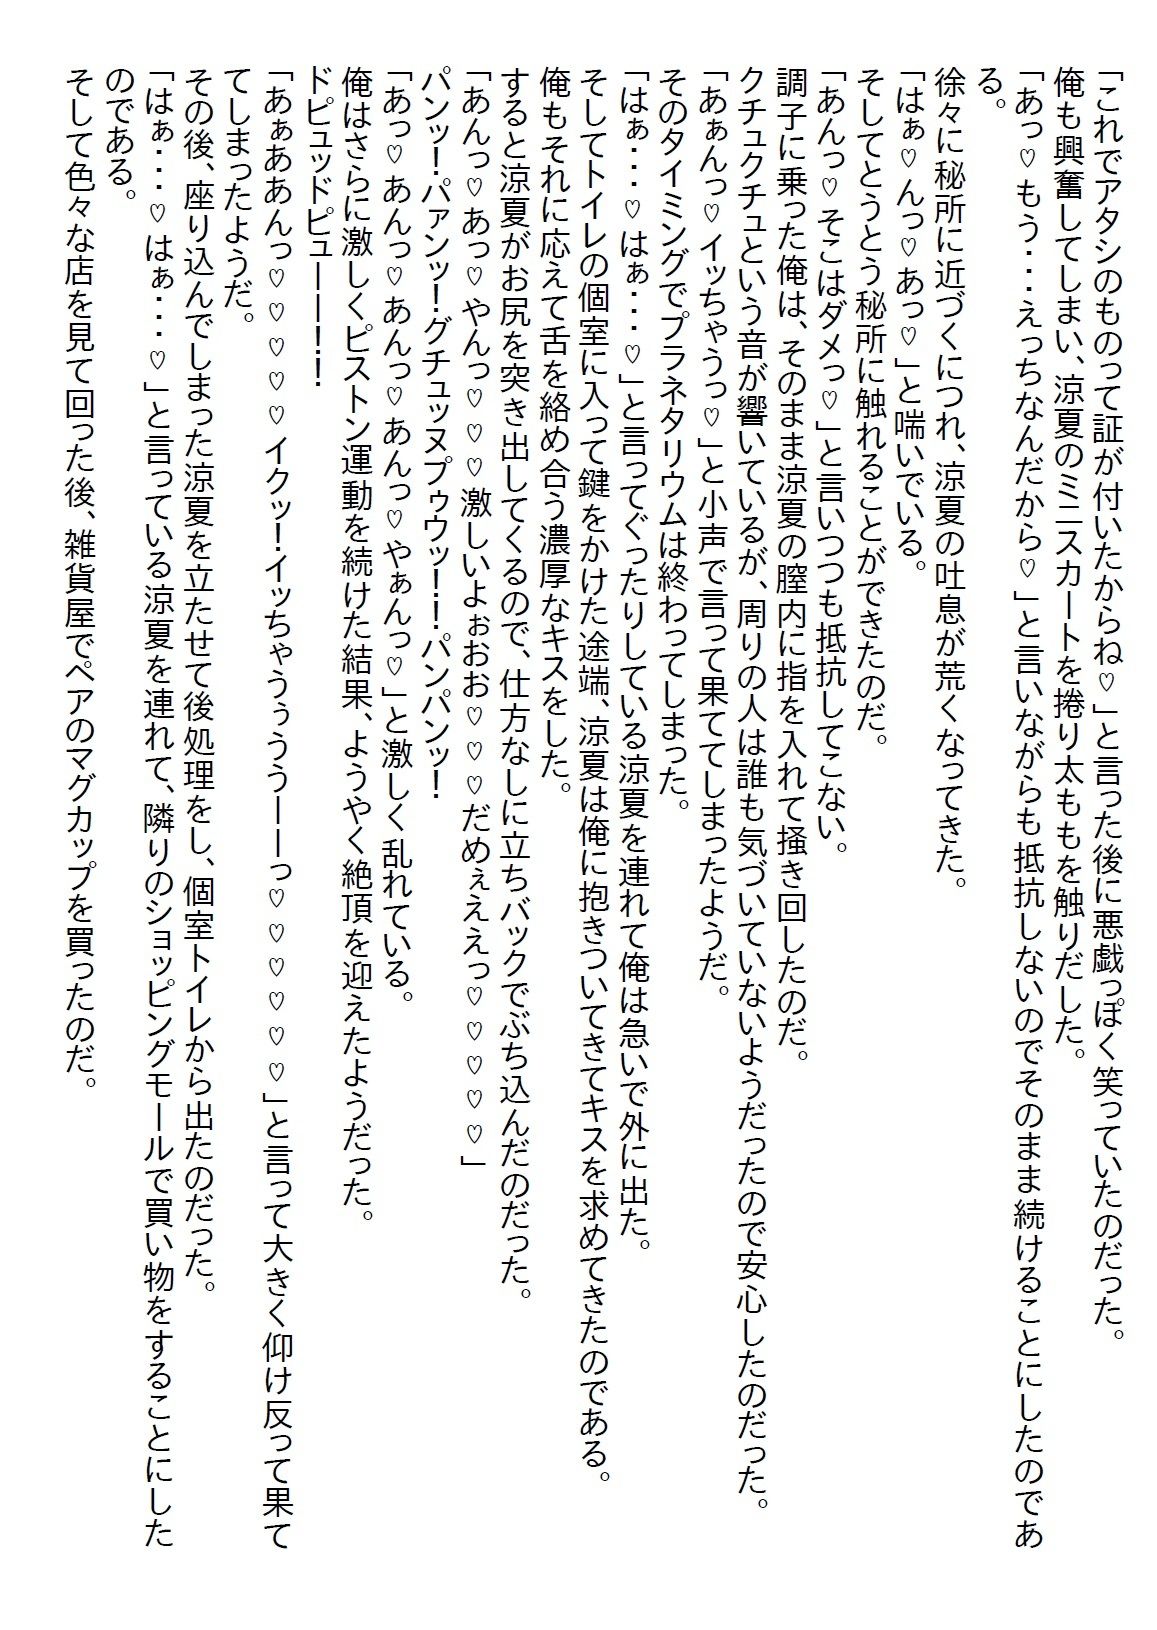 「これでアタシのものって証が付いたからね♡」と言った後に悪戯っぽく笑っていたのだった。
俺も興奮してしまい、涼夏のミニスカートを捲り太ももを触りだした。
「あっ♡もう・・・えっちなんだから♡」と言いながらも抵抗しないのでそのまま続けることにしたのであ
る。
徐々に秘所に近づくにつれ、涼夏の吐息が荒くなってきた。
「はぁ♡んっ♡あっ♡」と喘いでいる。
そしてとうとう秘所に触れることができたのだ。
「あんっ♡そこはダメっ♡」と言いつつも抵抗してこない。
調子に乗った俺は、そのまま涼夏の膣内に指を入れて掻き回したのだ。
クチュクチュという音が響いているが、周りの人は誰も気づいていないようだったので安心したのだった。
「あぁんっ♡イッちゃうっ♡」と小声で言って果ててしまったようだ。
そのタイミングでプラネタリウムは終わってしまった。
「はぁ・・・♡はぁ・・・♡」と言ってぐったりしている涼夏を連れて俺は急いで外に出た。
そしてトイレの個室に入って鍵をかけた途端、涼夏は俺に抱きついてきてキスを求めてきたのである。
俺もそれに応えて舌を絡め合う濃厚なキスをした。
すると涼夏がお尻を突き出してくるので、仕方なしに立ちバックでぶち込んだのだった。
「あんっ♡あっ♡やんっ♡♡♡激しいよぉおお♡♡♡だめぇええっ♡♡♡♡♡」
パンッ！パァンッ！グチュッヌプゥウッ！！パンパンッ！
「あっ♡あんっ♡あんっ♡あんっ♡やぁんっ♡」と激しく乱れている。
俺はさらに激しくピストン運動を続けた結果、ようやく絶頂を迎えたようだった。
ドピュッドピュ――！！
「あぁああんっ♡♡♡♡♡イクッ！イッちゃうぅうう――っ♡♡♡♡♡♡」と言って大きく仰け反って果て
てしまったようだ。
その後、座り込んでしまった涼夏を立たせて後処理をし、個室トイレから出たのだった。
「はぁ・・・♡はぁ・・・♡」と言っている涼夏を連れて、隣りのショッピングモールで買い物をすることにした
のである。
そして色々な店を見て回った後、雑貨屋でペアのマグカップを買ったのだ。